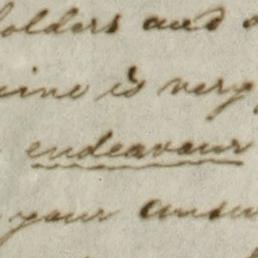 holders and
is very
endeavour
your answ